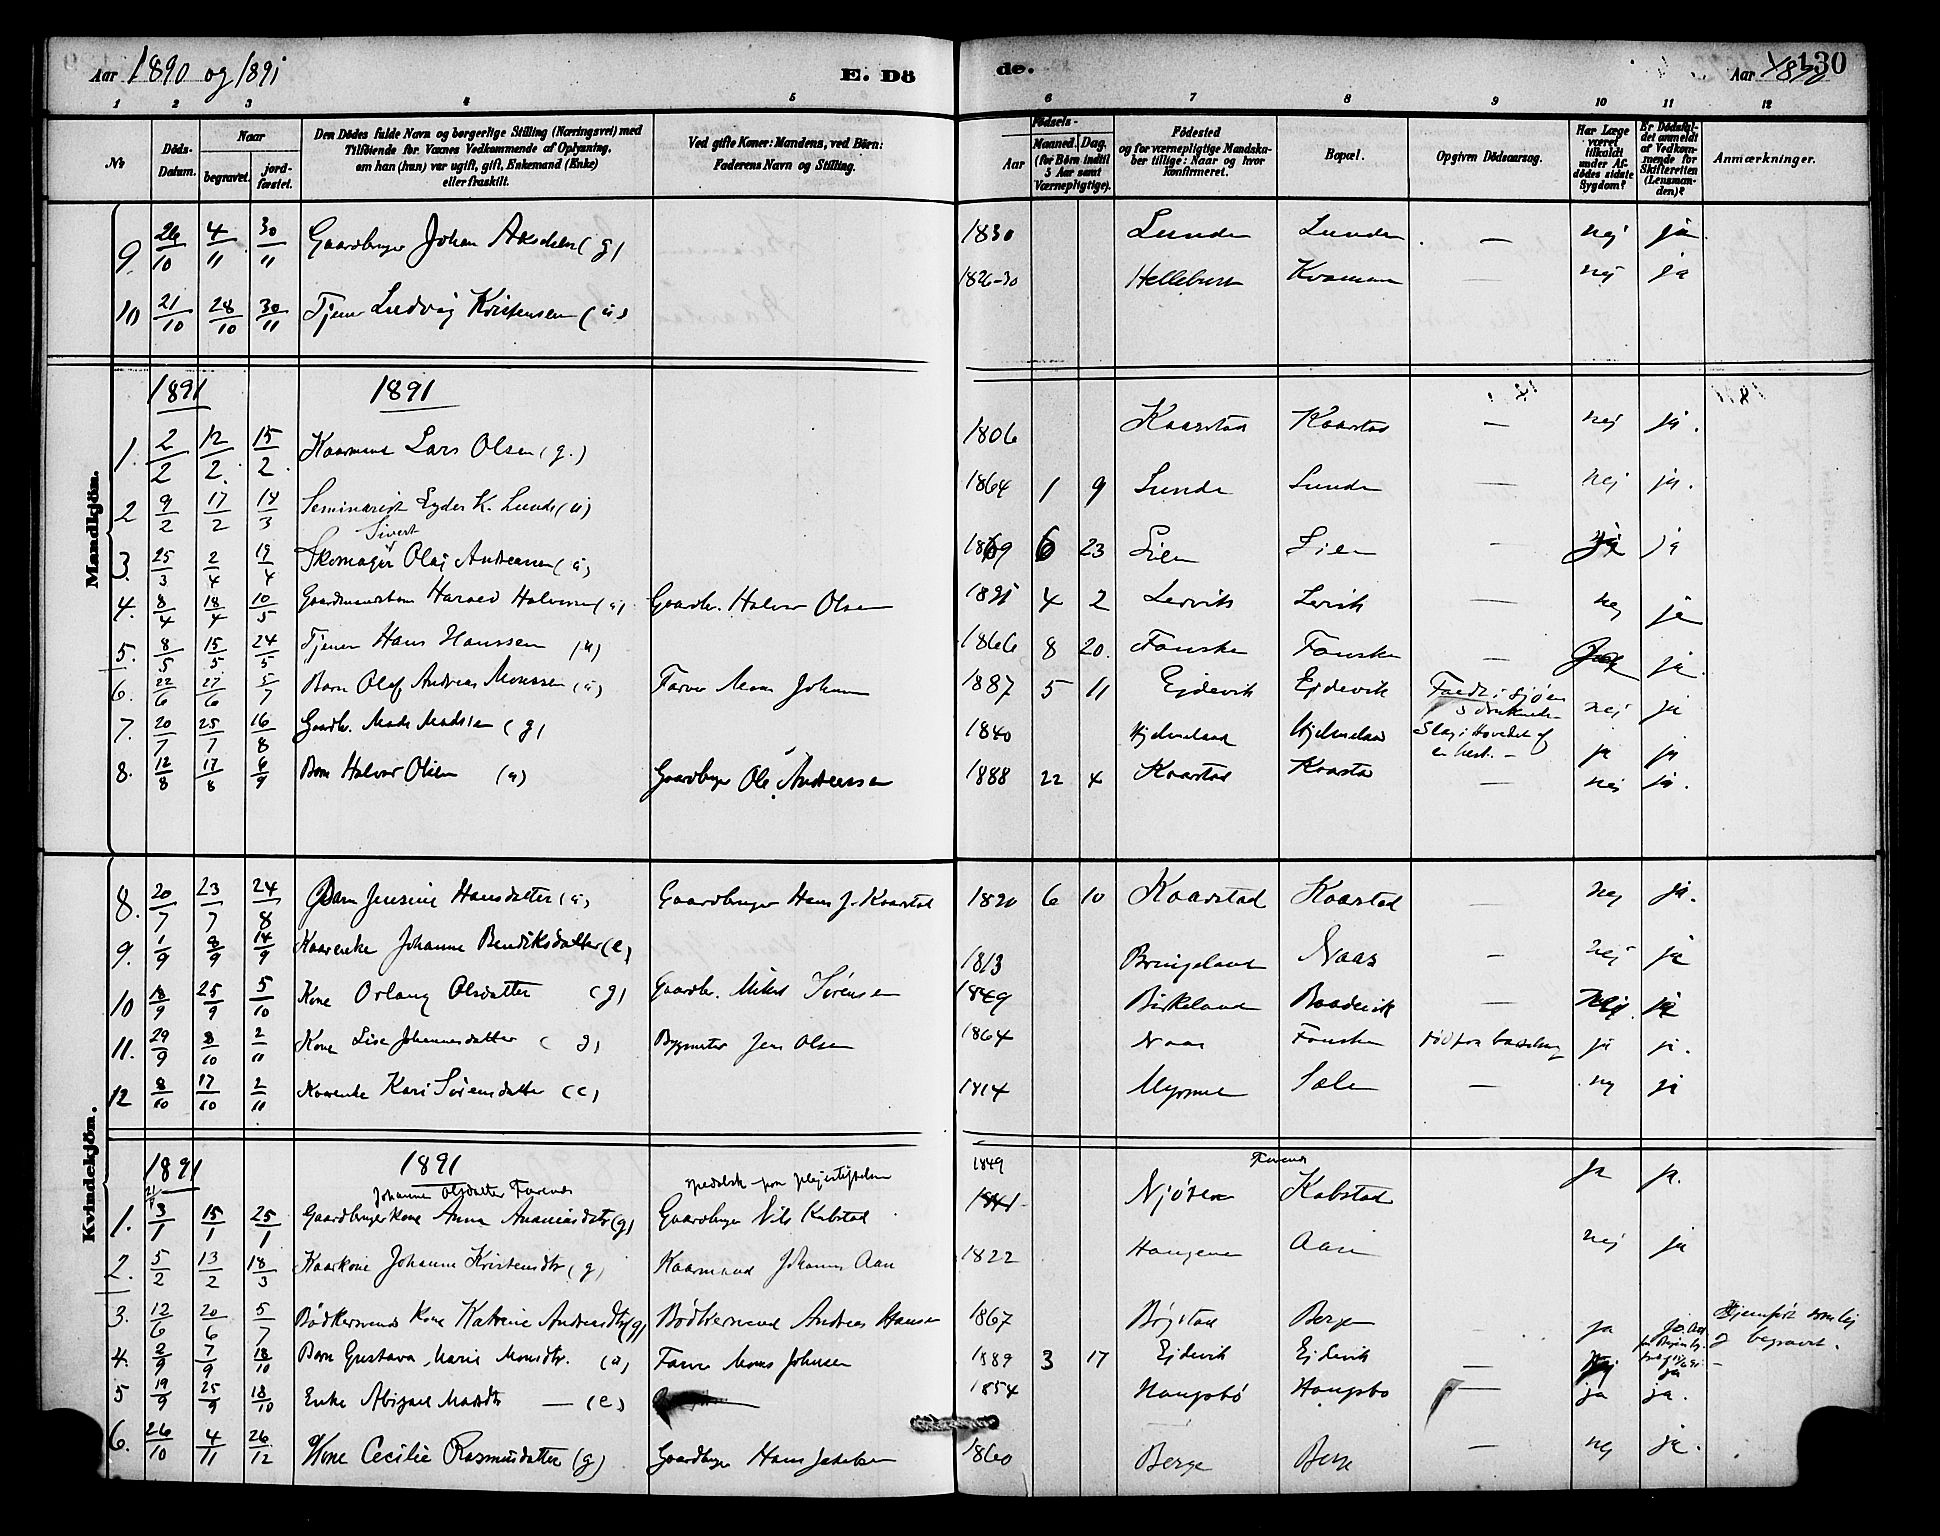 Aar 1890 og 1891 E. Dö de. Aar 1890 130
1 2 3 4 5 6 7 8 9 10 11 12
No Döds-Datum. Naar begravet. jord-fæstet. Den Dödes fulde Navn og borgerlige Stilling (Næringsvei) med Tilföiende for Voxnes Vedkommende af Oplysning, om han (hun) var ugift, gift, Enkemand (Enke) eller fraskilt. Ved gifte Koner: Mandens, ved Börn: Faderens Navn og Stilling. Födsels- Aar Maaned. Dag. (for Börn indtil 5 Aar samt Værnepligtige). Födested og for værnepligtige Mandskaber tillige: Naar og hvor konfirmeret. Bopæl. Opgiven Dödsaarsag. Har Læge været tilkaldt under Afdödes sidste Sygdom? Er Dödsfaldet anmeldt af Vedkommende for Skifteretten (Lensmanden)? Anmærkninger.
Mandkjön.
9 26/10 4/11 30/11 Gaardbruger Johan (g) 1830 Lunde Lunde — nej ja
10 21/10 28/10 30/11 Tjener Ludvig Kristensen (u) 1826-30 Kvamme nej ja
1891 1891
1. 2/2 12/2 15/2 Kaarmand Lars Olsen (g.) 1806 Kaarstad Kaarstad — nej ja.
2 9/2 17/2 14/3 Seminarist K. Lunde (u) 1864 1 9 Lunde Lunde — nej ja.
Sivert
3. 25/3 2/4 19/4 Skomager Olaj Andreassen (u) 1869 6 23 Lien Lien — ja
4. 8/4 18/4 10/5 Harald Halvorsen (u) Gaardbr. Halvor Olsen 1891 4 2 Lervik Lervik — nej ja
5. 8/5 15/5 24/5 Tjener Hans Hanssen (u) 1866 8 20. Fonske Fonske — ja.
6. 22/6 27/6 5/7 Barn Olaf Andreas Monssen (u) Farver Mons Johnsen 1887 5 11 Ejdevik Ejdevik i Sjøen nej ja
7. 20/7 25/7 16/8 Gaardbr. Mads Madsen (g) 1840 Hjelmeland Hjelmeland Slag i Hovedet af en hest. — ja ja
8. 12/8 17/8 6/9 Barn Halvor Olsen (u) Gaardbruger Ole Andreassen 1888 22 4 Kaarstad Kaarstad — nej ja.
Kvindekjön.
8. 20/7 23/7 24/8 Barn Jensine Hansdatter (u) Gaardbruger Hans J. Kaarstad 1890 6 10 Kaarstad Kaarstad — nej ja.
9. 1/9 8/9 14/9 Kaarenke Johanne Bendiksdatter (e) 1813 Bringeland Naas — nej ja
10 18/9 25/9 5/10 Kone Orlaug Olsdatter (g) Gaardbr. Mikel Sørensen 1849 Birkeland — ja
11. 29/9 8/10 2/11 Kone Lise Johannesdatter (g) Jens Olsen 1864 Naas Fonske ja ja.
12 8/10 17/10 2/11 Kaarenke Kari Sørensdatter (e) 1814 Sæle — nej ja
1891 1891
Johanne Olsdatter Furenes spedalsk — paa plejestiftelsen 1849 Furenes
1. 3/1 15/1 25/1 Gaardbrugerkone Anna Ananiasdtr (g) Gaardbruger Nils Kalstad Njøsen Kalstad ja ja.
2. 5/2 13/2 18/3 Kaarkone Johanne Kristensdtr (g) Kaarmand Johannes Aan 1822 Haugene nej ja
3. 12/6 20/6 5/7 Bødkersvends kone Katrine Andreasdtr (g) Bødkersvend Andreas Hansen 1867 Bergen ja Hjemført som lig og begravet.
4. 2/9 7/9 18/10 Barn Gustava Marie Monsdtr. (u) Farver Mons Johnsen 1889 3 17 Ejdevik Ejdevik — ja
5 19/9 25/9 18/10 Enke Abigael — (e) 1854 Haugsbø Haugsbø — ja ja.
6. 26/10 4/11 26/12 Kone Cecilie Rasmusdatter (g) Gaardbruger Hans Jakobsen 1860 Berge Berge — nej ja.